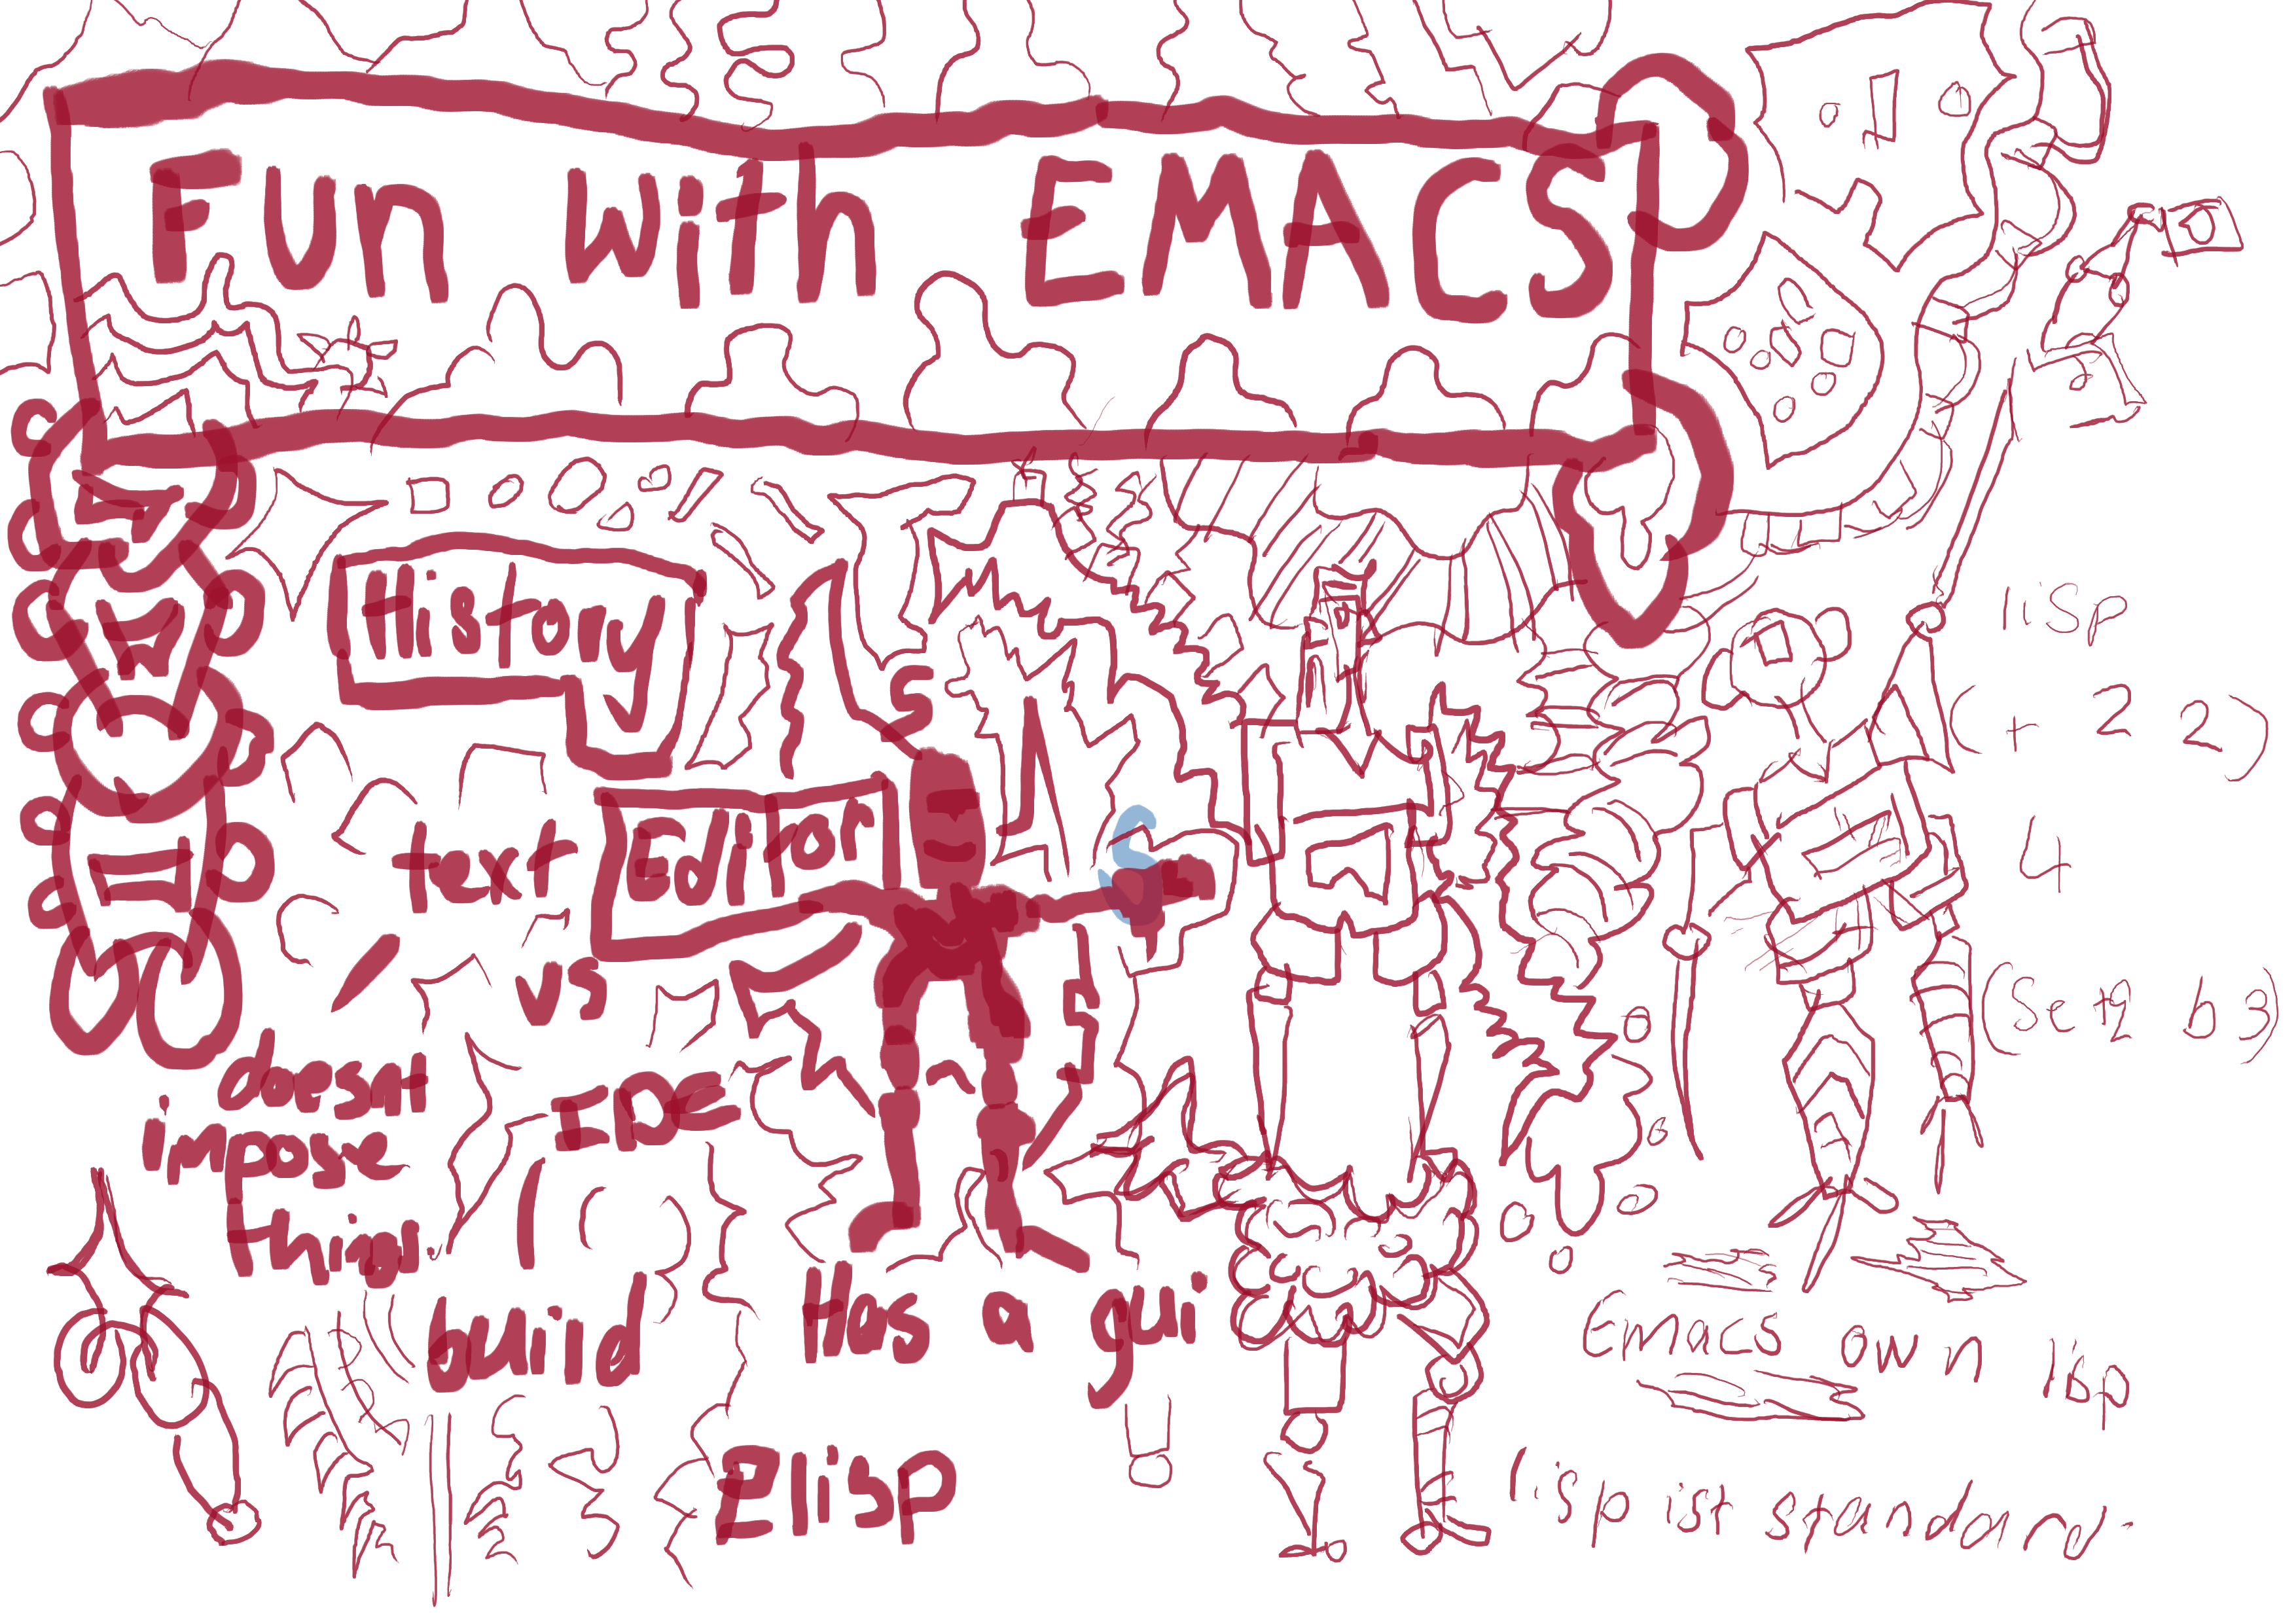 Fun with EMACS
History
text Editor
vs
IDE
doesnt
impose
things.
build
Has a gui
Elisp
lisp
(+ 2 2)
4
(Setq b 3)
Emacs own lisp
lisp ist standard